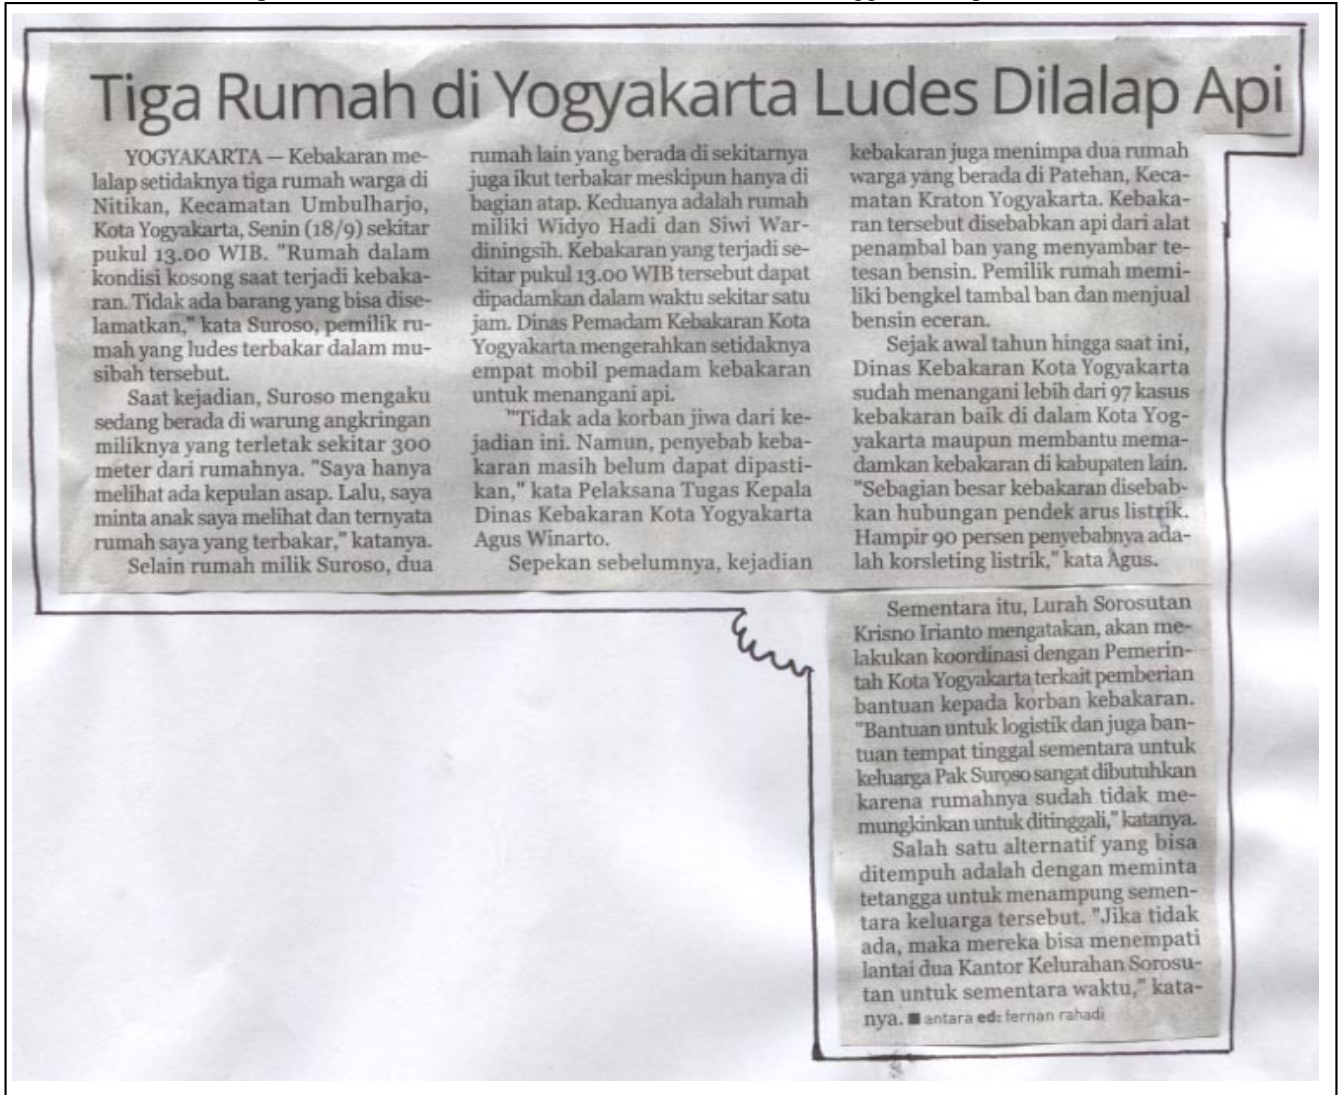 Tiga Rumah di Yogyakarta Ludes Dilalap Api
YOGYAKARTA — Kebakaran me-
lalap setidaknya tiga rumah warga di
Nitikan, Kecamatan Umbulharjo,
Kota Yogyakarta, Senin (18/9) sekitar
pukul 13.00 WIB. "Rumah dalam
kondisi kosong saat terjadi kebaka-
ran. Tidak ada barang yang bisa dise-
lamatkan," kata Suroso, pemilik ru-
mah yang ludes terbakar dalam mu-
sibah tersebut.
Saat kejadian, Suroso mengaku
sedang berada di warung angkringan
miliknya yang terletak sekitar 300
meter dari rumahnya. "Saya hanya
melihat ada kepulan asap. Lalu, saya
minta anak saya melihat dan ternyata
rumah saya yang terbakar," katanya.
Selain rumah milik Suroso, dua
rumah lain yang berada di sekitarnya
juga ikut terbakar meskipun hanya di
bagian atap. Keduanya adalah rumah
miliki Widyo Hadi dan Siwi War-
diningsih. Kebakaran yang terjadi se-
kitar pukul 13.00 WIB tersebut dapat
dipadamkan dalam waktu sekitar satu
jam. Dinas Pemadam Kebakaran Kota
Yogyakarta mengerahkan setidaknya
empat mobil pemadam kebakaran
untuk menangani api.
"Tidak ada korban jiwa dari ke-
jadian ini. Namun, penyebab keba-
karan masih belum dapat dipasti-
kan," kata Pelaksana Tugas Kepala
Dinas Kebakaran Kota Yogyakarta
Agus Winarto.
Sepekan sebelumnya, kejadian
kebakaran juga menimpa dua rumah
warga yang berada di Patehan, Keca-
matan Kraton Yogyakarta. Kebaka-
ran tersebut disebabkan api dari alat
penambal ban yang menyambar te-
tesan bensin. Pemilik rumah memi-
liki bengkel tambal ban dan menjual
bensin eceran.
Sejak awal tahun hingga saat ini,
Dinas Kebakaran Kota Yogyakarta
sudah menangani lebih dari 97 kasus
kebakaran baik di dalam Kota Yog-
yakarta maupun membantu mema-
damkan kebakaran di kabupaten lain.
"Sebagian besar kebakaran disebab-
kan hubungan pendek arus listrik.
Hampir 90 persen penyebabnya ada-
lah korsleting listrik," kata Agus.
Sementara itu, Lurah Sorosutan
Krisno Irianto mengatakan, akan me-
lakukan koordinasi dengan Pemerin-
tah Kota Yogyakarta terkait pemberian
bantuan kepada korban kebakaran.
"Bantuan untuk logistik dan juga ban-
tuan tempat tinggal sementara untuk
keluarga Pak Suroso sangat dibutuhkan
karena rumahnya sudah tidak me-
mungkinkan untuk ditinggali," katanya.
Salah satu alternatif yang bisa
ditempuh adalah dengan meminta
tetangga untuk menampung semen-
tara keluarga tersebut. "Jika tidak
ada, maka mereka bisa menempati
lantai dua Kantor Kelurahan Sorosu-
tan untuk sementara waktu," kata-
nya. ■ antara ed: fernan rahadi